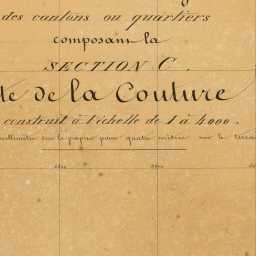 des cantons ou quartiers
composant la
SECTION C.
de la Couture
construit à l'échelle de 1 à 4000.
sur le papier pour quatre mètres sur le